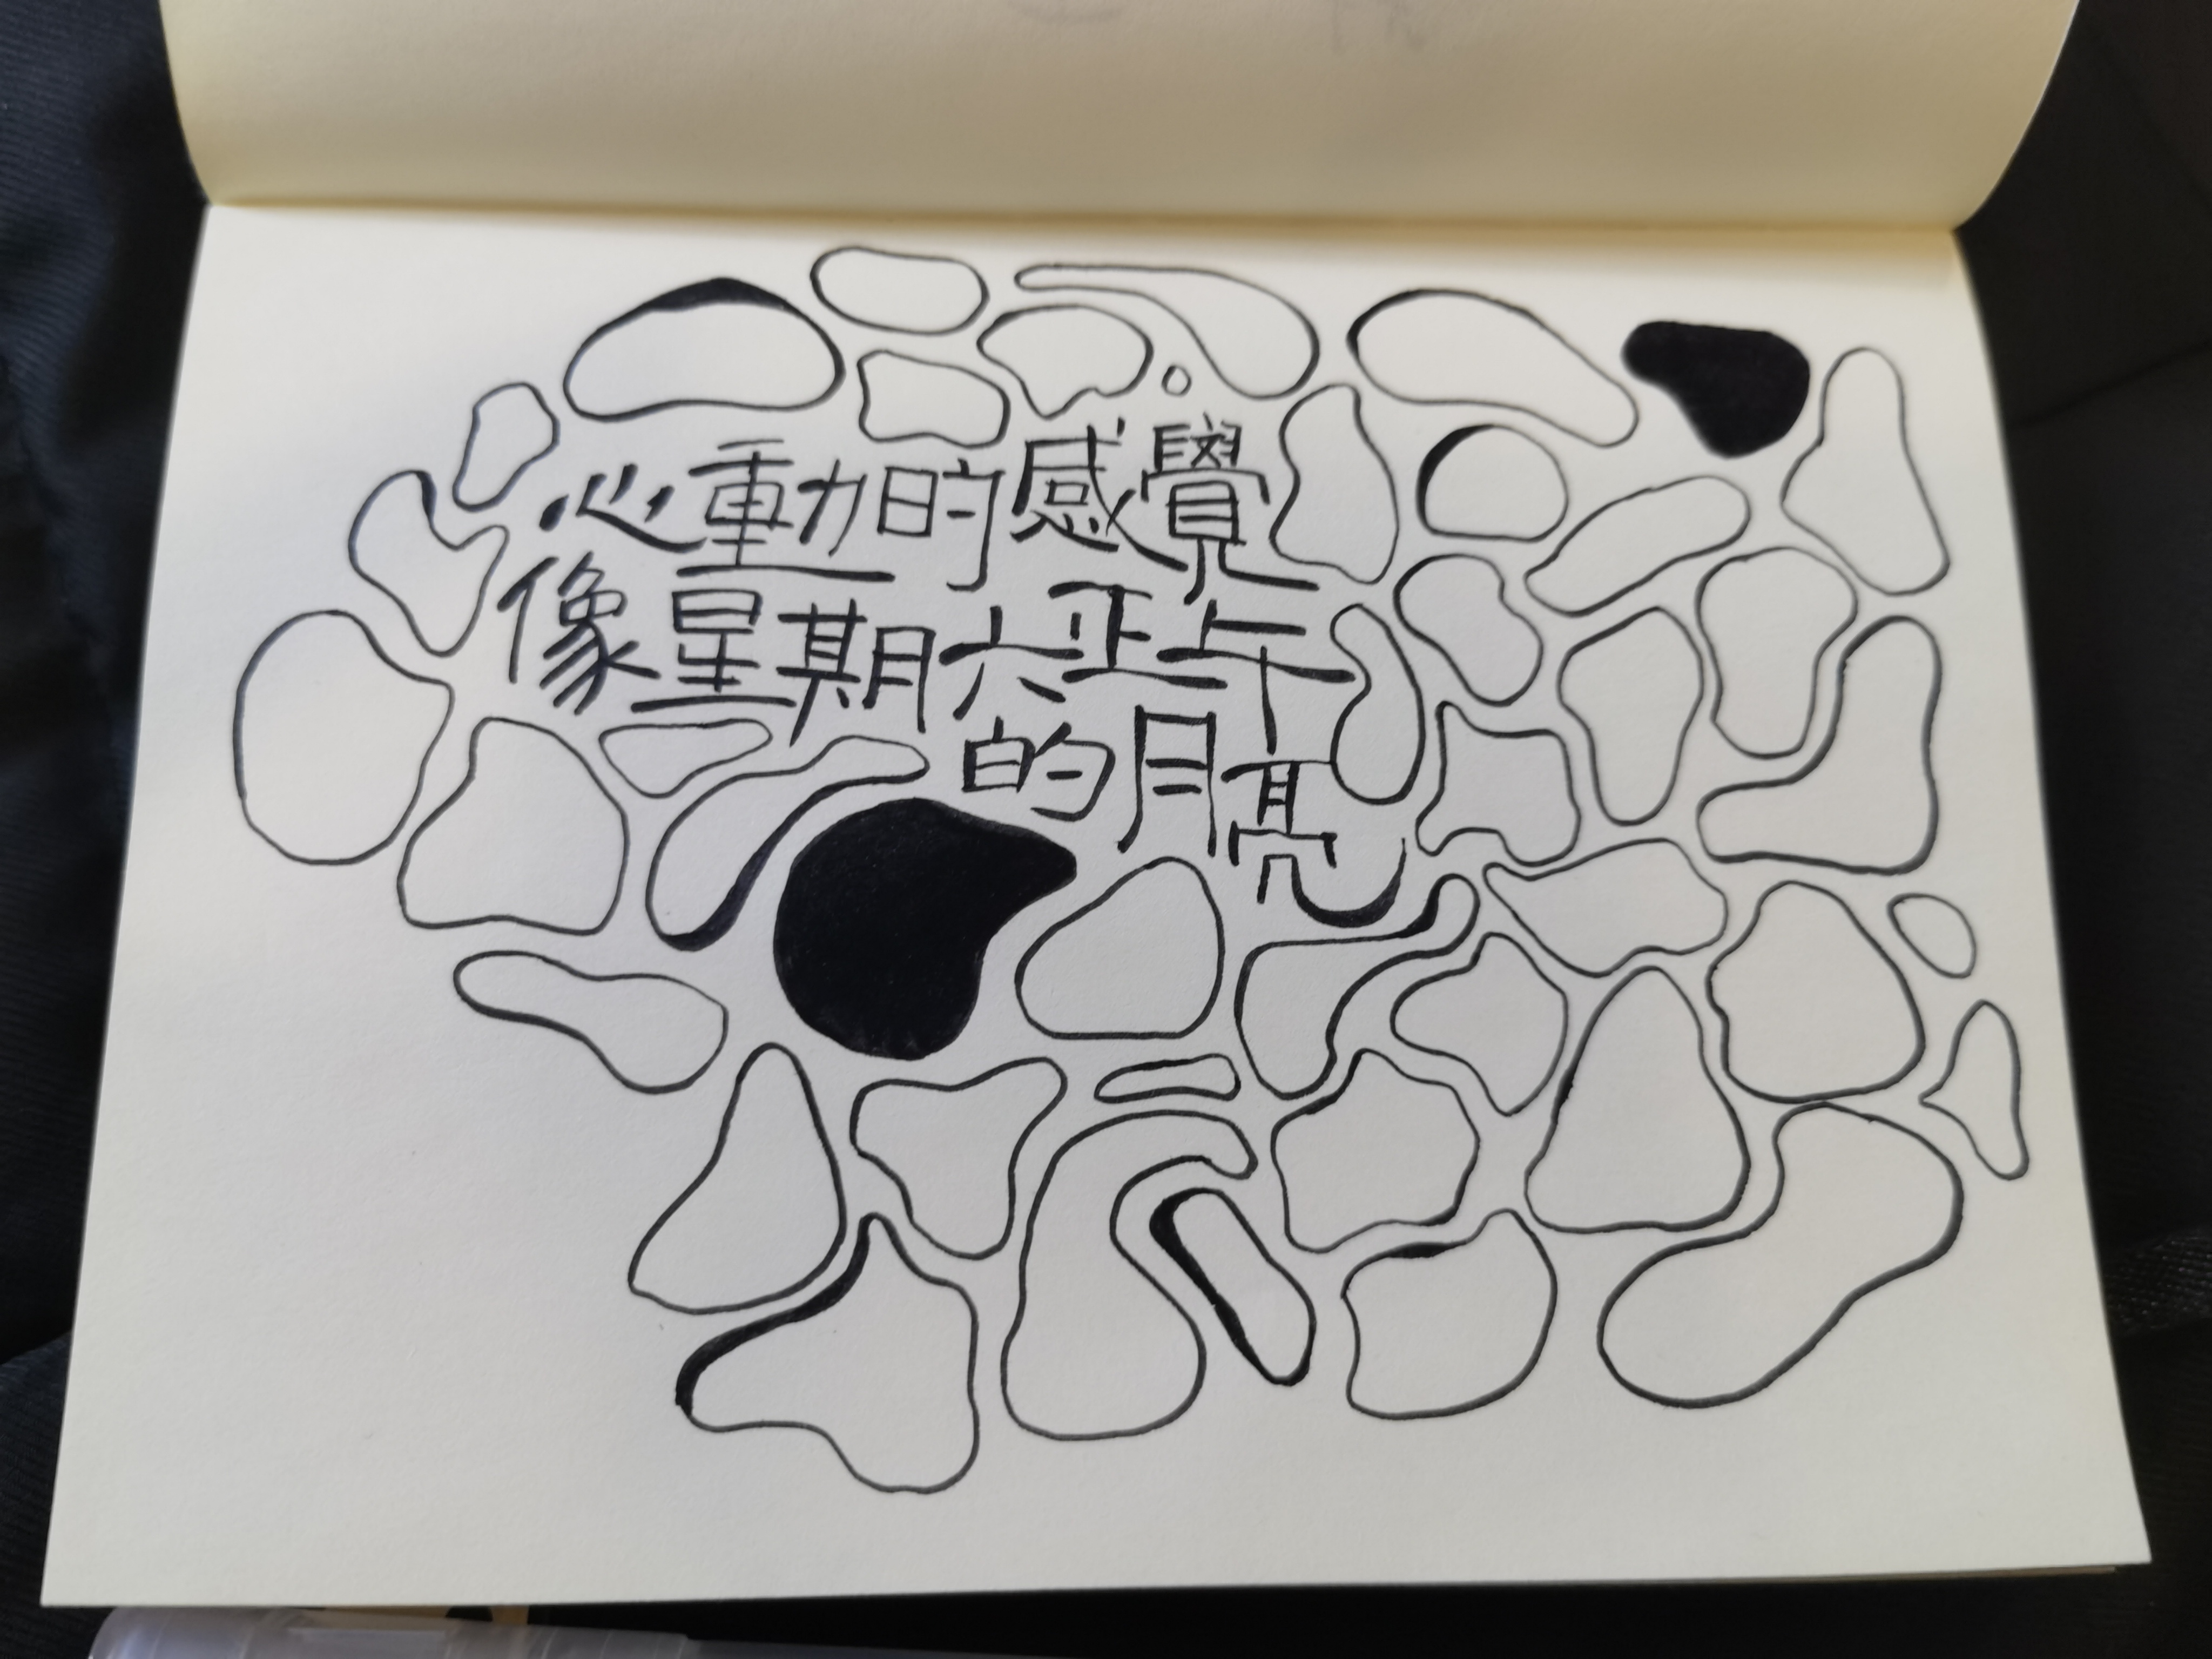 心動的感覺
像星期六正午
的月亮